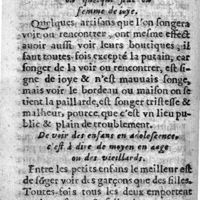 ou quelque seul ou
femme de ioye.
Quelques artisans que l'on songera
voir ou rencontrer, ont mesme effect
auoir aussi voir leurs boutiques: il
faut toutes-fois excepté la putain, car
songer de la voir ou rencontrer, est si-
gne de ioye & n'est mauuais songe,
mais voir le bordeau ou maison on se
tient la paillarde, est songer tristesse &
malheur, pource que c'est vn lieu pu-
blic & plain de troublement.
De voir des enfans en adolescence,
c'est à dire de moyen en aage
ou des vieillards.
Entre les petits enfans le meilleur est
de sõger voir des garçons que des filles.
Toutes-fois tous les deux emportent